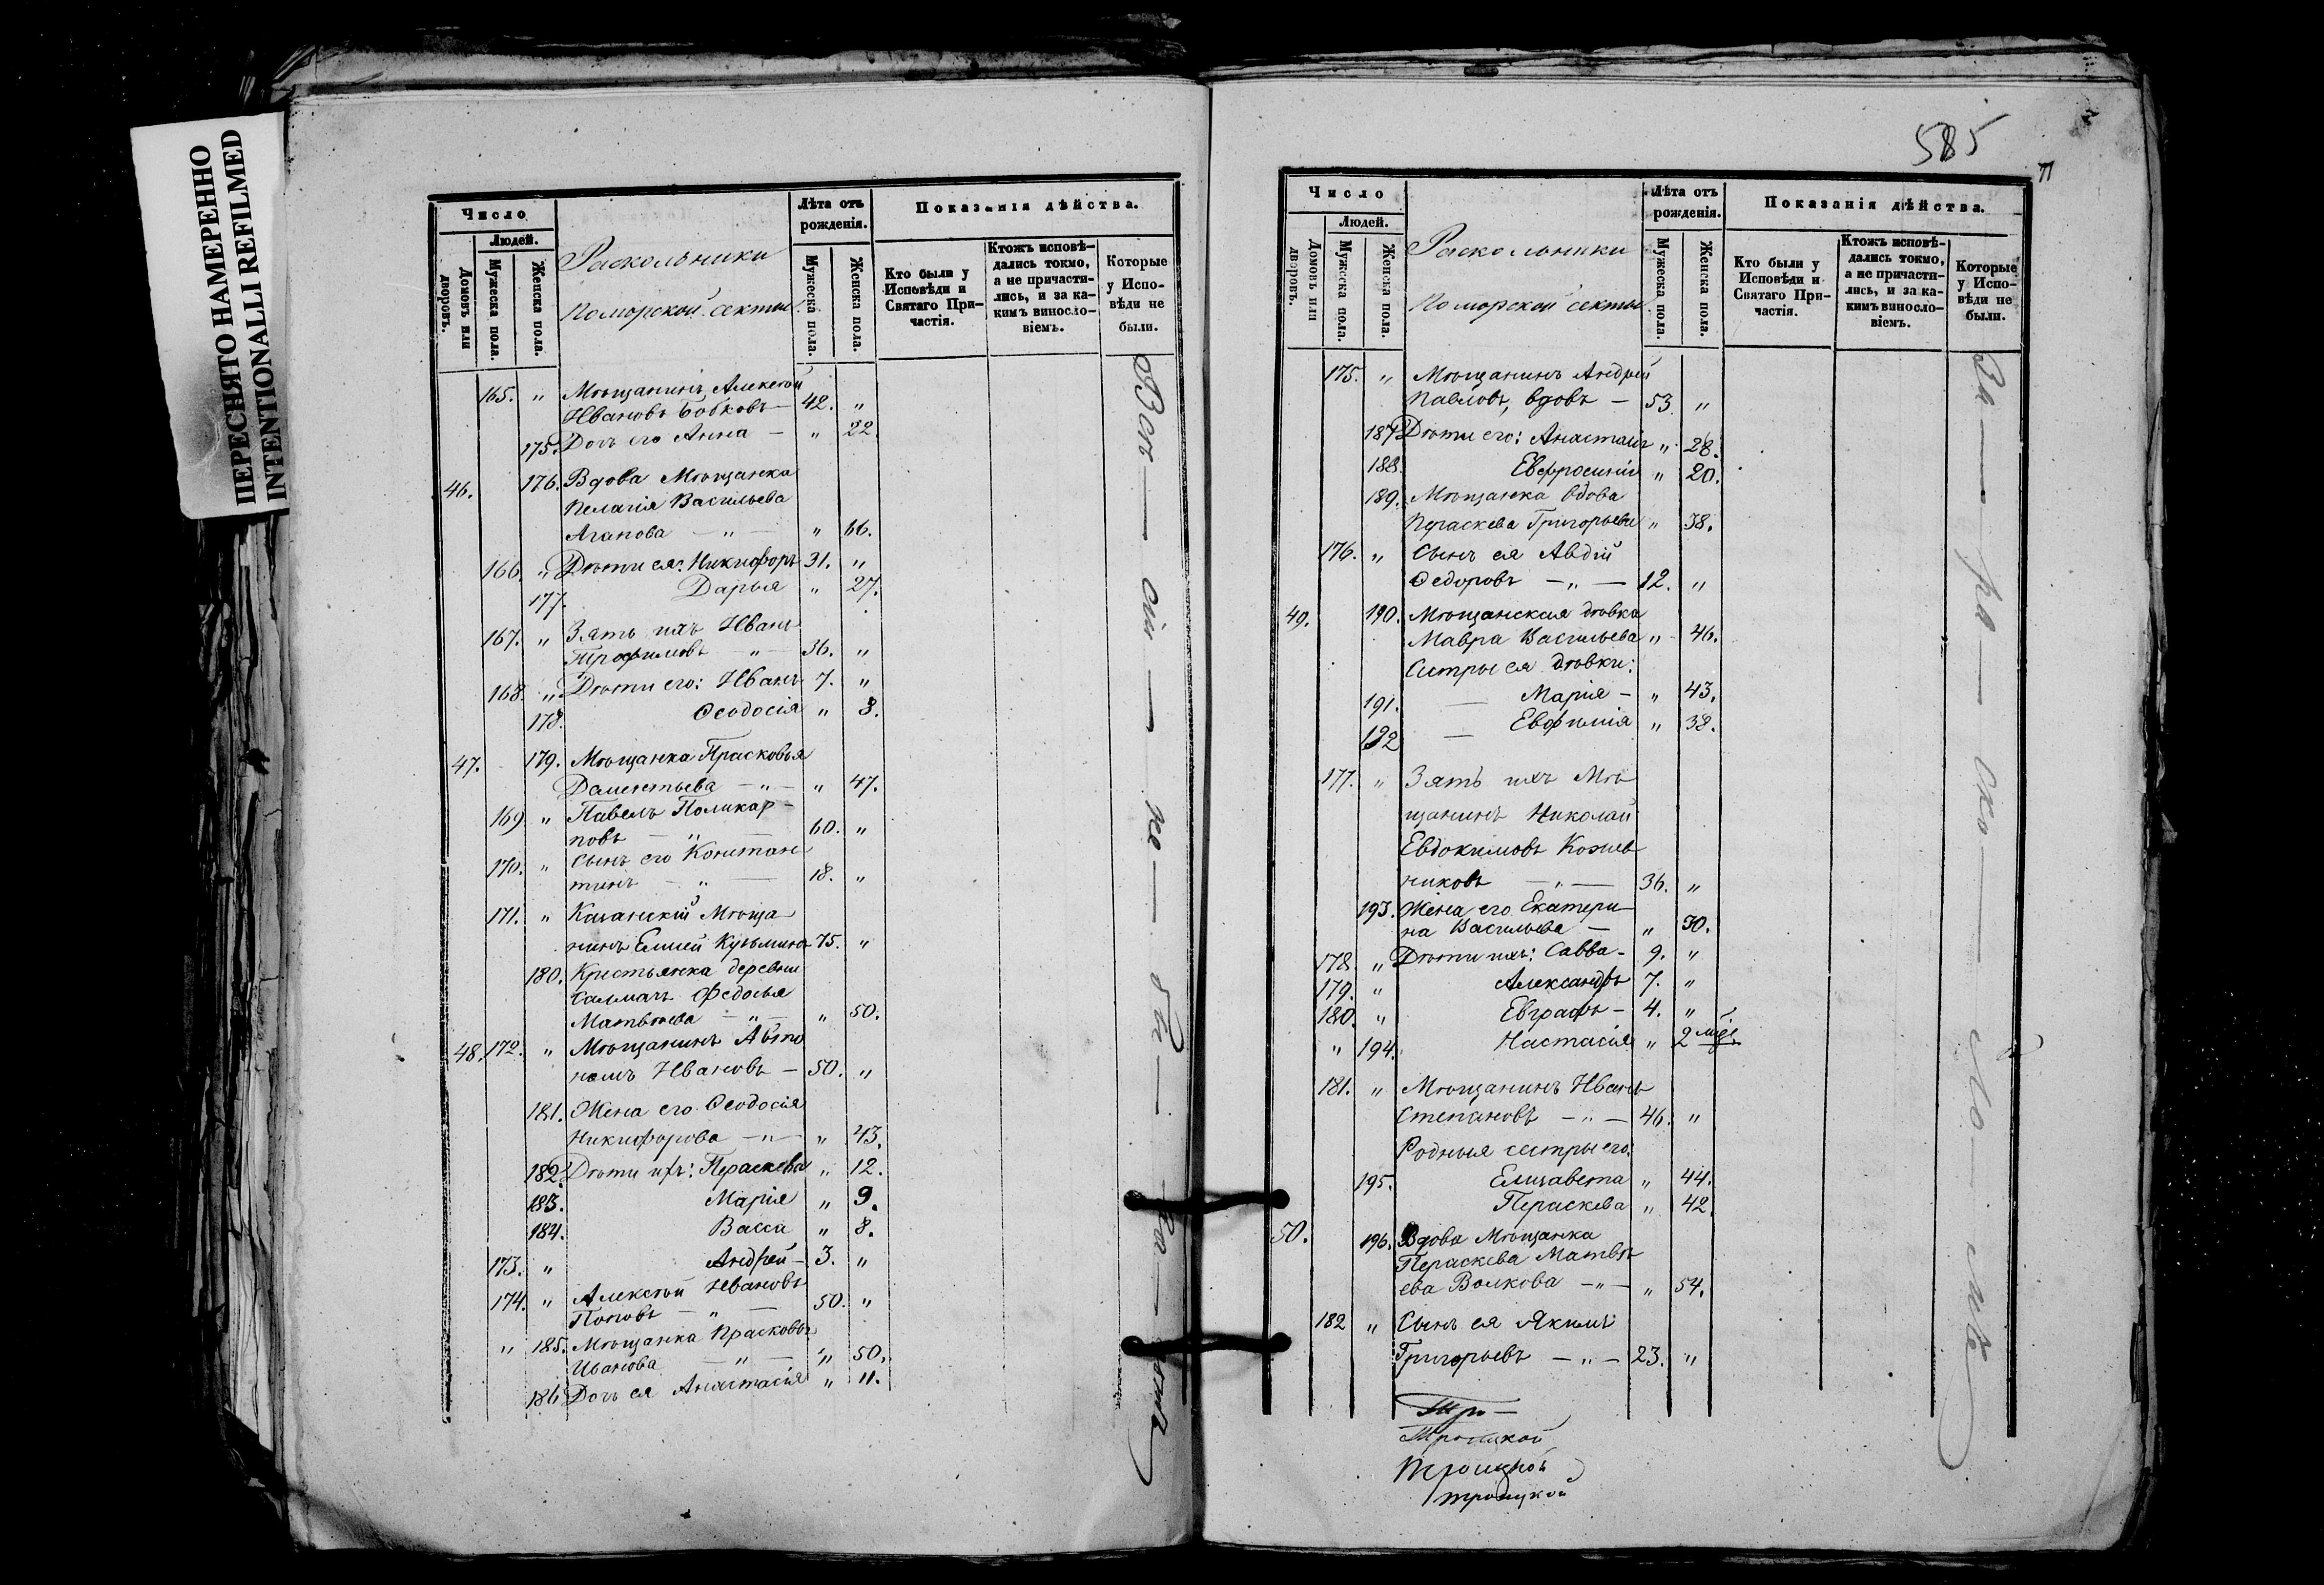 ПЕРЕСНЯТО НАМЕРЕННО
INTENTIONALLI REFILMED
Число
Людей.
Домовъ или дворовъ.
Мужеска пола.
Женска пола.
Раскольники
Поморской секты
Лѣта отъ рожденія.
Мужеска пола.
Женска пола.
Показанія дѣйства.
Кто были у Исповѣди и Святаго Причастія.
Ктожъ исповѣ-
дались токмо,
а не причасти-
лись, и за ка-
кимъ виносло-
віемъ.
Которые
у Испо-
вѣди не
были.
165. " Мѣщанинъ Алексѣй
Ивановъ Бобковъ — 42. "
175. Дочь его Анна — " 22.
46. 176. Вдова Мѣщанка
Пелагія Васильева
Агапова — " — " 66.
166. " Дѣти ея: Никифоръ 31. "
177. Дарья " 27.
167. " Зять ихъ Иванъ
Трофимовъ — " — 36. "
168. " Дѣти его: Иванъ 7. "
178. Ѳеодосія " 8.
47. 179. Мѣщанка Прасковья
Дементьева — " — " 47.
169 " Павелъ Поликар-
повъ — " — 60. "
170. " Сынъ его Констан
тинъ — " — 18. "
171. " Казанскій Мѣща
нинъ Елисей Кузьминъ 75. "
180. Крестьянка деревни
Салмачъ Федосья
Матвѣева — " — " 50.
48. 172. " Мѣщанинъ Авто
номъ Ивановъ — 50. "
181. Жена его Ѳеодосія
Никифорова — " — " 43.
182. Дѣти ихъ: Параскева " 12.
183. Марія " 9.
184. Васса " 8.
173. " Андрей — 3. "
174. " Алексѣй Ивановъ
Поповъ — " — 50. "
" 185. Мѣщанка Прасковья
Иванова — " — " 50.
186 Дочь ея Анастасія " 11.
585
Число
Людей.
Домовъ или дворовъ.
Мужеска пола.
Женска пола.
Раскольники
Поморской секты
Лѣта отъ рожденія.
Мужеска пола.
Женска пола.
Показанія дѣйства.
Кто были у
Исповѣди и
Святаго При-
частія.
Ктожъ исповѣ-
дались токмо,
а не причасти-
лись, и за ка-
кимъ виносло-
віемъ.
Которые
у Испо-
вѣди не
были.
175. " Мѣщанинъ Андрей
Павловъ, вдовъ — 53. "
187 Дѣти его: Анастасія " 28.
188. Евфросинія " 20.
189. Мѣщанка вдова
Параскева Григорьева " 38.
176. " Сынъ ея Авдій
Ѳедоровъ — " — 12. "
49. 190. Мѣщанская дѣвка
Мавра Васильева " 46.
Сестры ея дѣвки:
191. — Марія — " 43.
192 — Евфимія " 38.
177. " Зять ихъ Мѣ
щанинъ Николай
Евдокимовъ Кожев
никовъ — " — 36. "
193. Жена его Екатери
на Васильева — " 30.
178. " Дѣти ихъ: Савва — 9. "
179. " Александръ 7. "
180. " Евграфъ — 4. "
" 194. Настасія " 2 мѣс.
181. " Мѣщанинъ Иванъ
Степановъ — " — 46. "
Родныя сестры его:
195. Елизавета " 44.
Параскева " 42.
50. 196. Вдова Мѣщанка
Параскева Матвѣ
ева Волкова — " — " 54.
182 " Сынъ ея Якимъ
Григорьевъ — " — 23. "
Тро—
Троицкой
Троицкой
троицкой